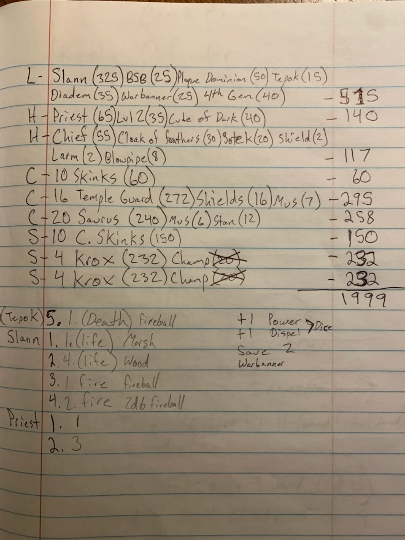 L - Slann (325) BSB (25) Plague Dominion (50) Tepok (15)
Diadem (35) Warbanner (25) 4th Gen (40) - 515
H - Priest (65) Lvl 2 (35) Cube of Dark (40) - 140
H - Chief (55) Cloak of feathers (30) Sotek (20) Shield (2)
Larm (2) Blowpipe (8) - 117
C - 10 Skinks (60) - 60
C - 16 Temple Guard (272) Shields (16) Mus (7) - 295
C - 20 Saurus (240) Mus (6) Stan (12) - 258
S - 10 C. Skinks (150) - 150
S - 4 Krox (232) Champ - 232
S - 4 Krox (232) Champ - 232
1999
(Tepok) 5. 1. (Death) fireball +1 Power > Dice
Slann 1. 1. (life) Marsh +1 Dispel
2. 4. (life) Wood Save 2
3. 1 fire fireball Warbanner
4. 2. fire 2d6 fireball
Priest 1. 1
2. 3